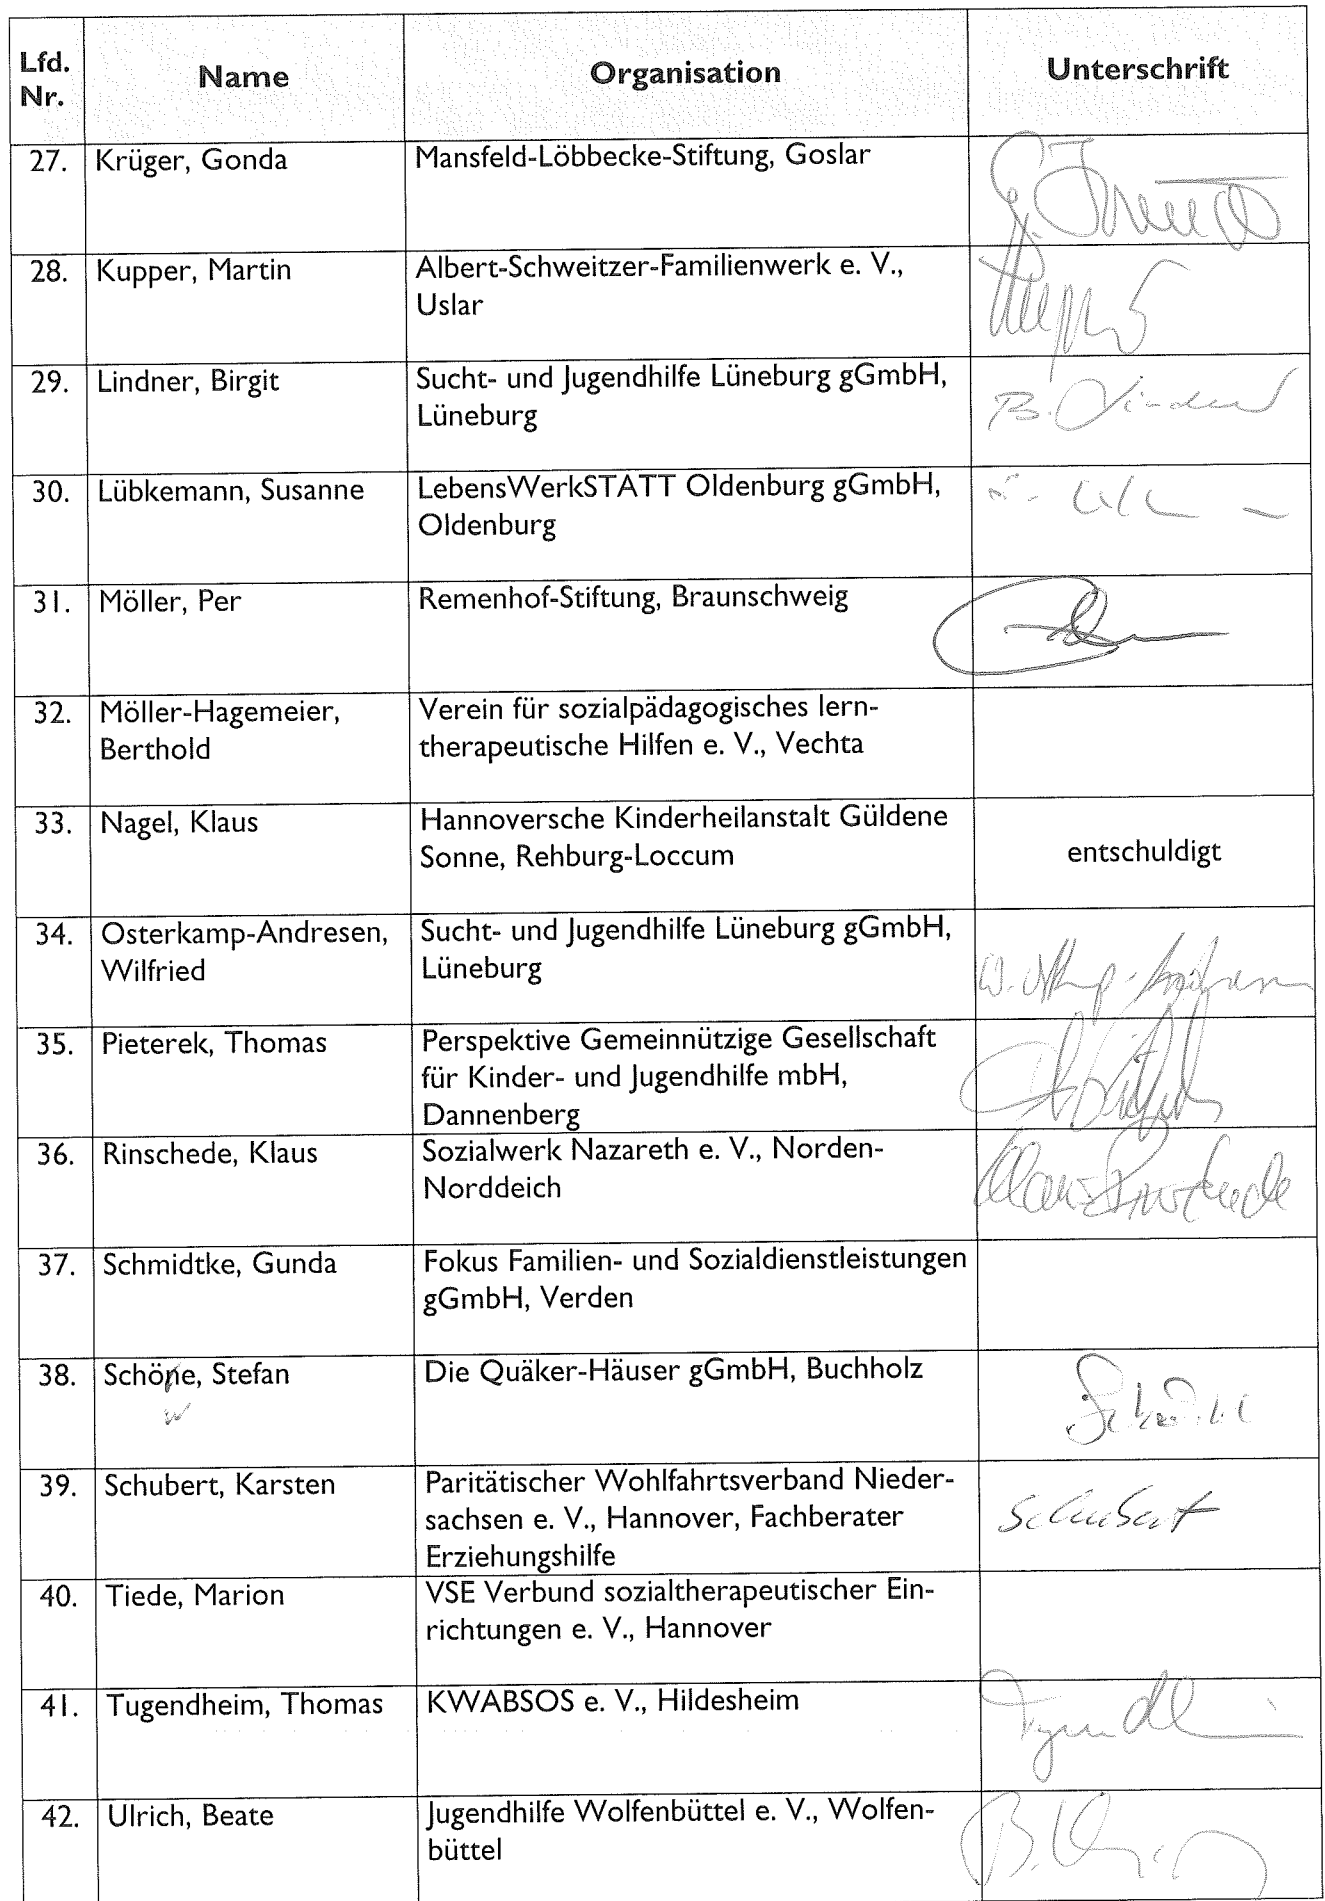 Lfd. Nr. Name Organisation Unterschrift
27. Krüger, Gonda Mansfeld-Löbbecke-Stiftung, Goslar
28. Kupper, Martin Albert-Schweitzer-Familienwerk e. V.,
Uslar
29. Lindner, Birgit Sucht- und Jugendhilfe Lüneburg gGmbH, B. Lindner
Lüneburg
30. Lübkemann, Susanne LebensWerkSTATT Oldenburg gGmbH,
Oldenburg
31. Möller, Per Remenhof-Stiftung, Braunschweig
32. Möller-Hagemeier, Verein für sozialpädagogisches lern-
Berthold therapeutische Hilfen e. V., Vechta
33. Nagel, Klaus Hannoversche Kinderheilanstalt Güldene
Sonne, Rehburg-Loccum entschuldigt
34. Osterkamp-Andresen, Sucht- und Jugendhilfe Lüneburg gGmbH,
Wilfried Lüneburg
35. Pieterek, Thomas Perspektive Gemeinnützige Gesellschaft
für Kinder- und Jugendhilfe mbH,
Dannenberg
36. Rinschede, Klaus Sozialwerk Nazareth e. V., Norden-
Norddeich Klaus Rinschede
37. Schmidtke, Gunda Fokus Familien- und Sozialdienstleistungen
gGmbH, Verden
38. Schöne, Stefan Die Quäker-Häuser gGmbH, Buchholz
39. Schubert, Karsten Paritätischer Wohlfahrtsverband Nieder-
sachsen e. V., Hannover, Fachberater Schubert
Erziehungshilfe
40. Tiede, Marion VSE Verbund sozialtherapeutischer Ein-
richtungen e. V., Hannover
41. Tugendheim, Thomas KWABSOS e. V., Hildesheim
42. Ulrich, Beate Jugendhilfe Wolfenbüttel e. V., Wolfen-
büttel